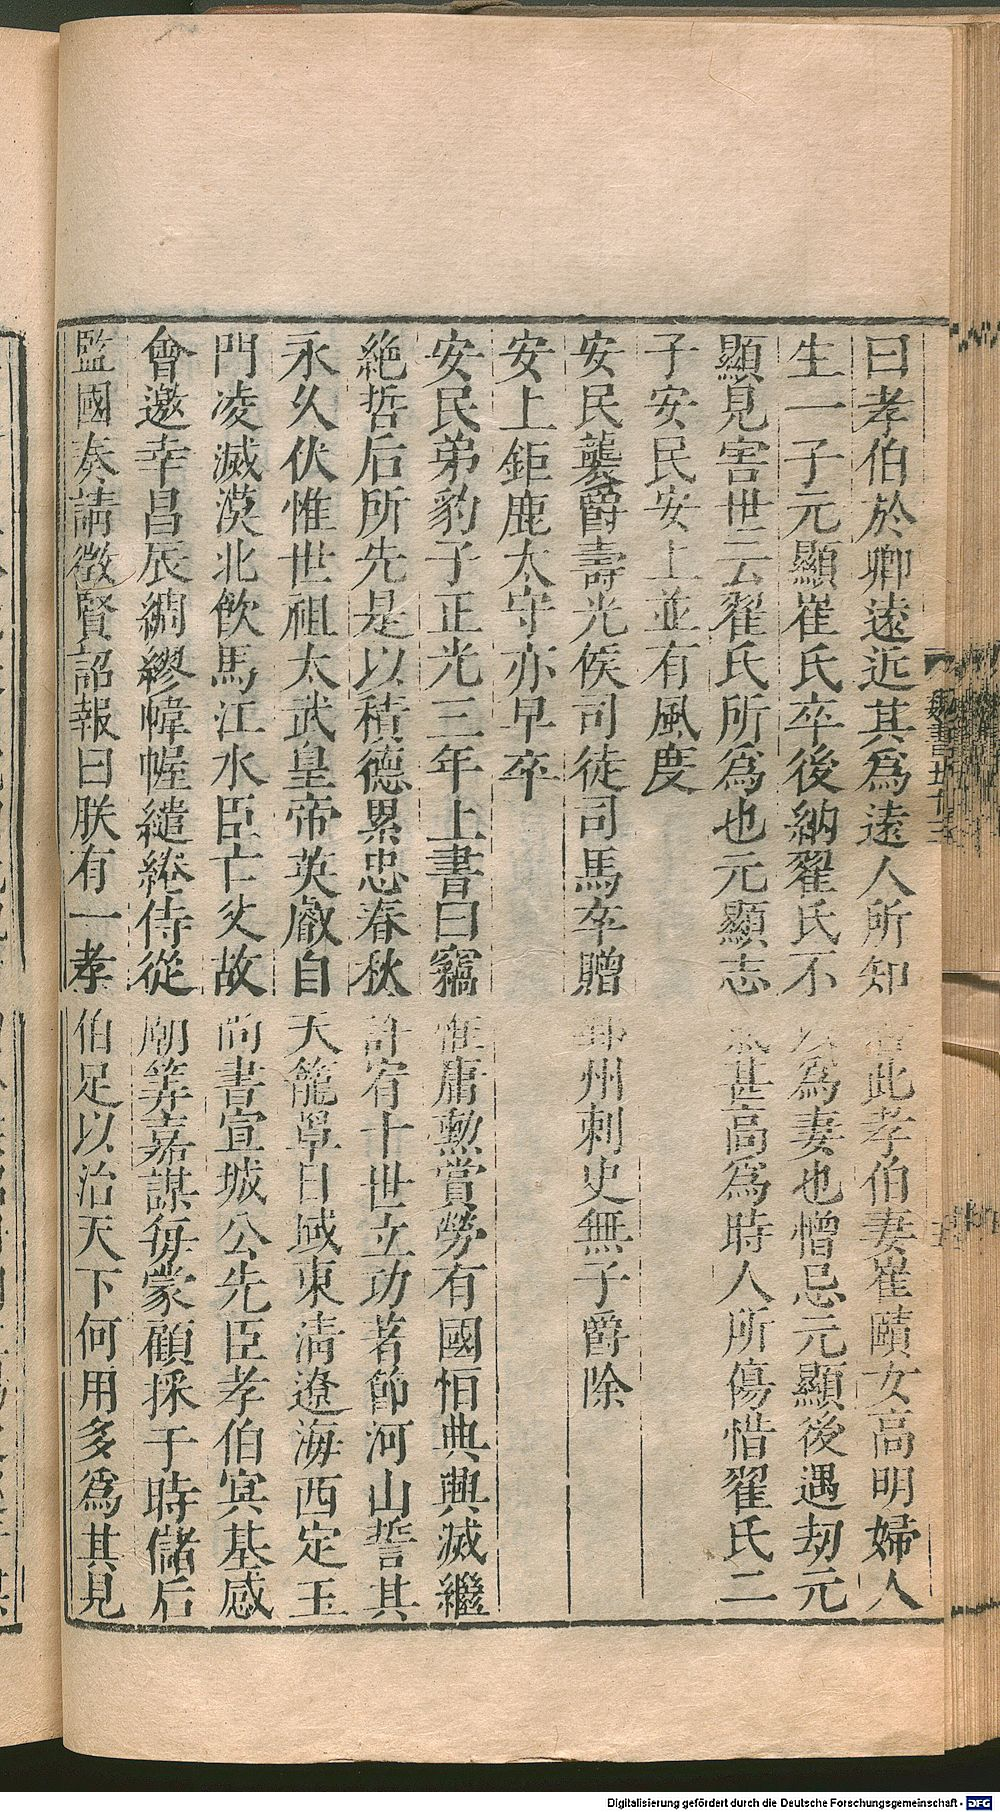 曰孝伯於卿遠近其為遠人所知此孝伯妻崔賾女高明婦人
生一子元顯崔氏卒後納翟氏不以為妻也憎忌元顯後遇劫元
顯見害世云翟氏所為也元顯志氣甚高為時人所傷惜翟氏二
子安民安上並有風度
安民襲爵壽光侯司徒司馬卒贈郢州刺史無子爵除
安上鉅鹿太守亦早卒
安民弟豹子正光三年上書曰竊惟庸勲賞勞有國恒典興滅繼
絶哲后所先是以積德累忠春秋許宥十世立功著節河山誓其
永久伏惟世祖太武皇帝英叡自天籠罩日域東清遼海西定玉
門凌滅漠北飲馬江水臣亡父故尚書宣城公先臣孝伯㝠基感
會邀幸昌辰綢繆幃幄繾綣侍從廟筭嘉謀每蒙顧採于時儲后
監國奏請徵賢詔報曰朕有一孝伯足以治天下何用多為其見
魏書五十三
Digitalisierung gefördert durch die Deutsche Forschungsgemeinschaft - DFG